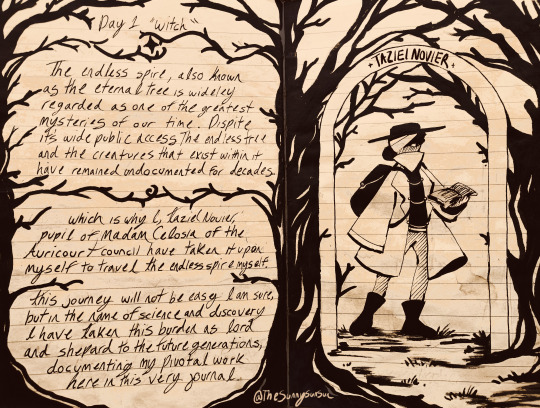 Day 1 "Witch"
The endless spire, also known
as the eternal tree is wideley
regarded as one of the greatest
mysteries of our time. Dispite
it's wide public access The endless tree
and the creatures that exist within it
have remained undocumented for decades.
which is why I, Taziel Novier,
pupil of Madam Celosia of the
Auricourt council have taken it upon
myself to travel the endless spire myself.
this journey will not be easy I am sure,
but in the name of science and discovery
I have taken this burden as lord
and shepard to the future generations,
documenting my pivotal work
here in this very journal.
@TheSunnysunsun
TAZIEL NOVIER